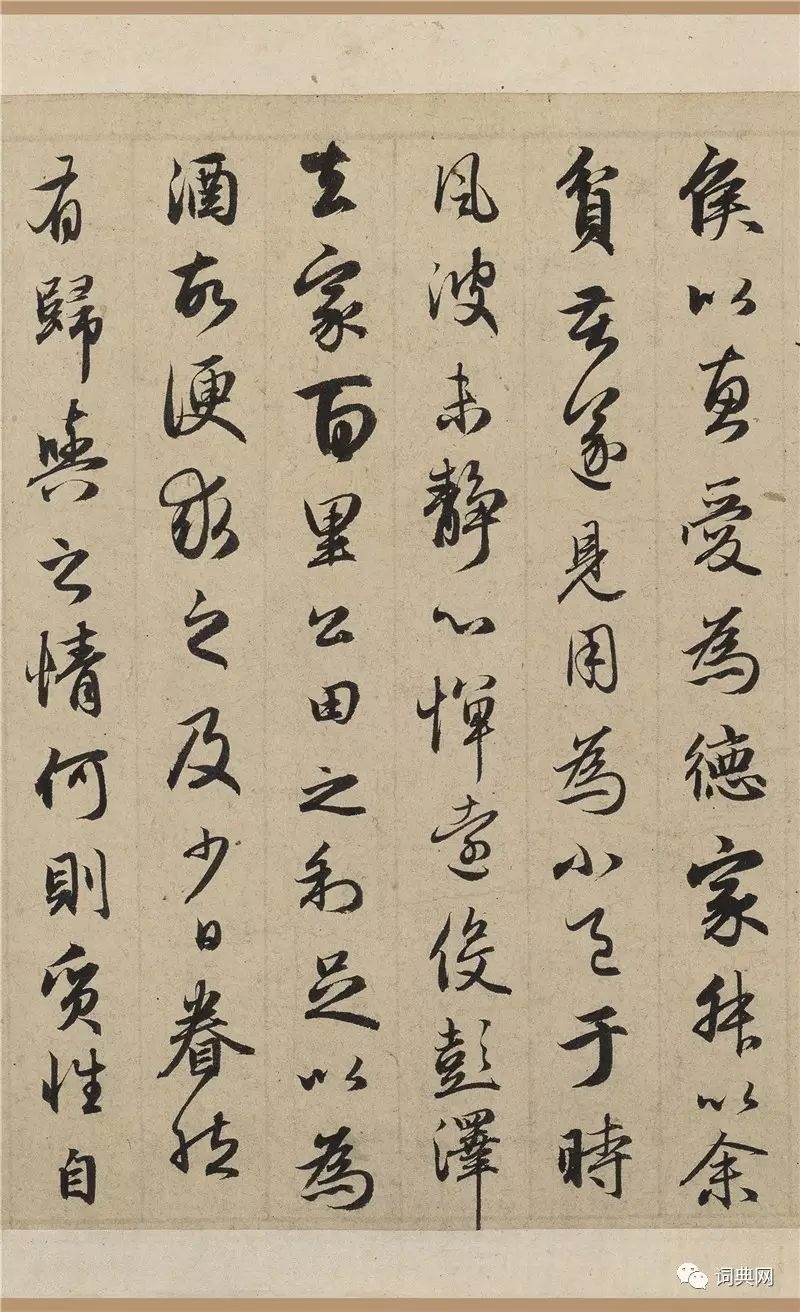 侯以惠愛為德家叔以余
貧苦遂見用為小邑于時
風波未靜心憚遠役彭澤
去家百里公田之利足以為
酒故便求之及少日眷然
有歸與之情何則質性自
词典网